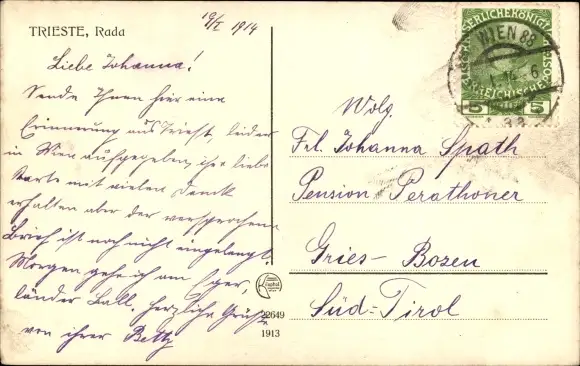 TRIESTE, Rada
19/I 1914
Liebe Johanna!
Sende Ihnen hier eine
Erinnerung aus Triest, leider
in Wien aufgegeben, ihre liebe
Karte mit vielen Dank
erhalten aber der versprochene
Brief ist noch nicht eingelangt.
Morgen geh ich am
länder Ball, herzliche Grüße
von ihrer Betty
22649
1913
KAISERLICHE KÖNIGL
ÖSTERREICHISCHE POST
5 5
WIEN 88
Wolg.
Frl. Johanna Spath
Pension Perathoner
Gries- Bozen
Süd-Tirol